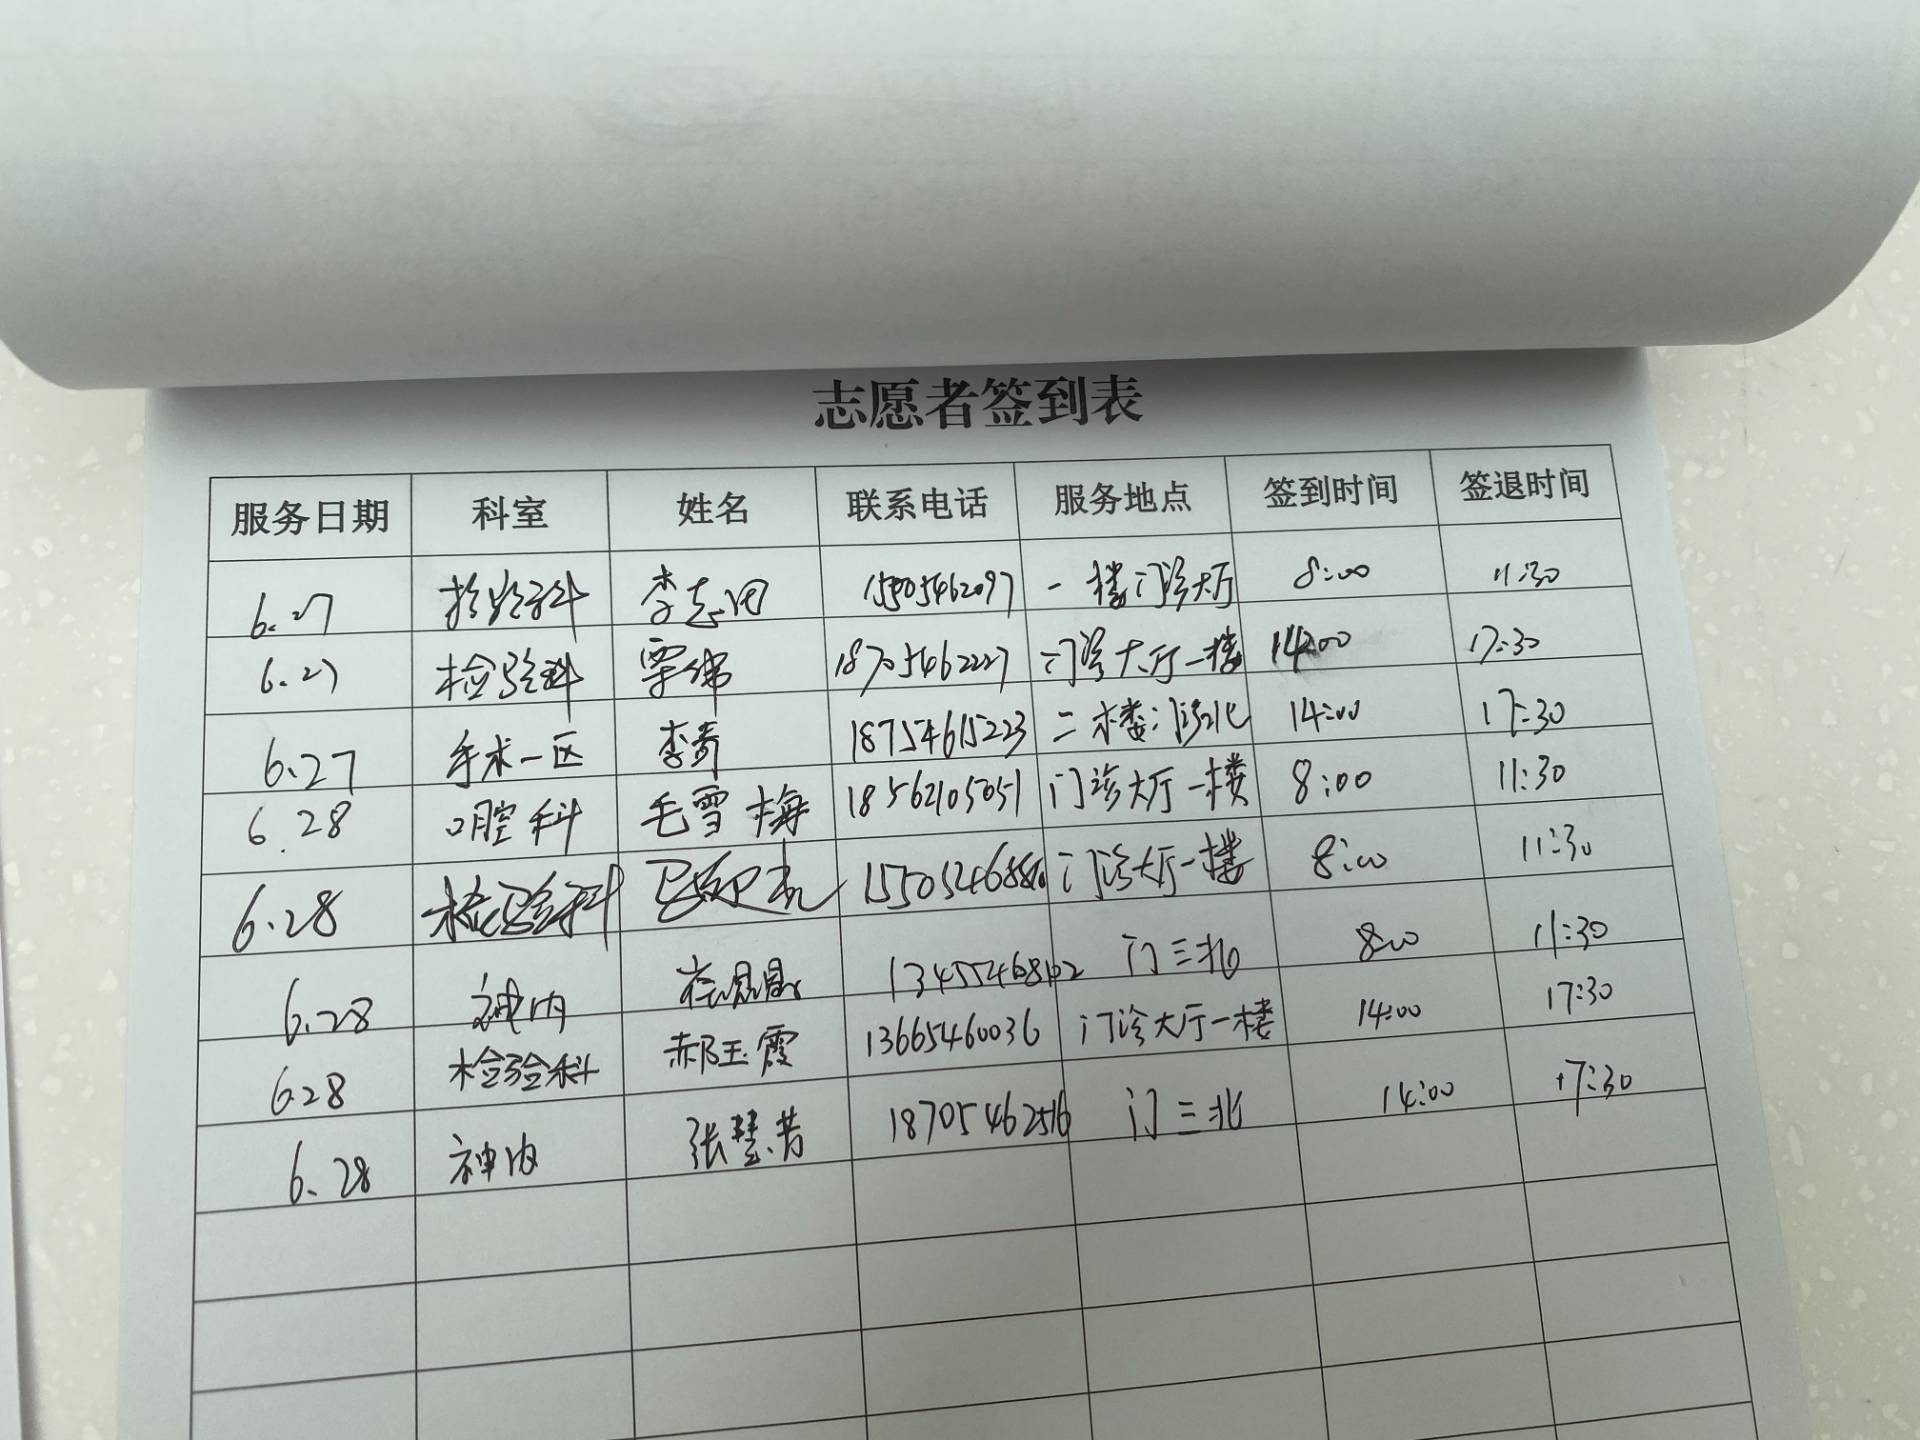 志愿者签到表
服务日期 科室 姓名 联系电话 服务地点 签到时间 签退时间
6.27 检验科 李志田 15905462097 一楼门诊大厅 8:00 11:30
6.27 检验科 栗锦 18705462227 门诊大厅一楼 14:00 17:30
6.27 手术一区 李青 18754615223 二楼门诊北 14:00 17:30
6.28 口腔科 毛雪梅 18562105051 门诊大厅一楼 8:00 11:30
6.28 检验科 门诊大厅一楼 8:00 11:30
6.28 神内 门三北 8:00 11:30
6.28 检验科 郝玉霞 13665460036 门诊大厅一楼 14:00 17:30
6.28 神内 张慧芳 18705462516 门三北 14:00 17:30